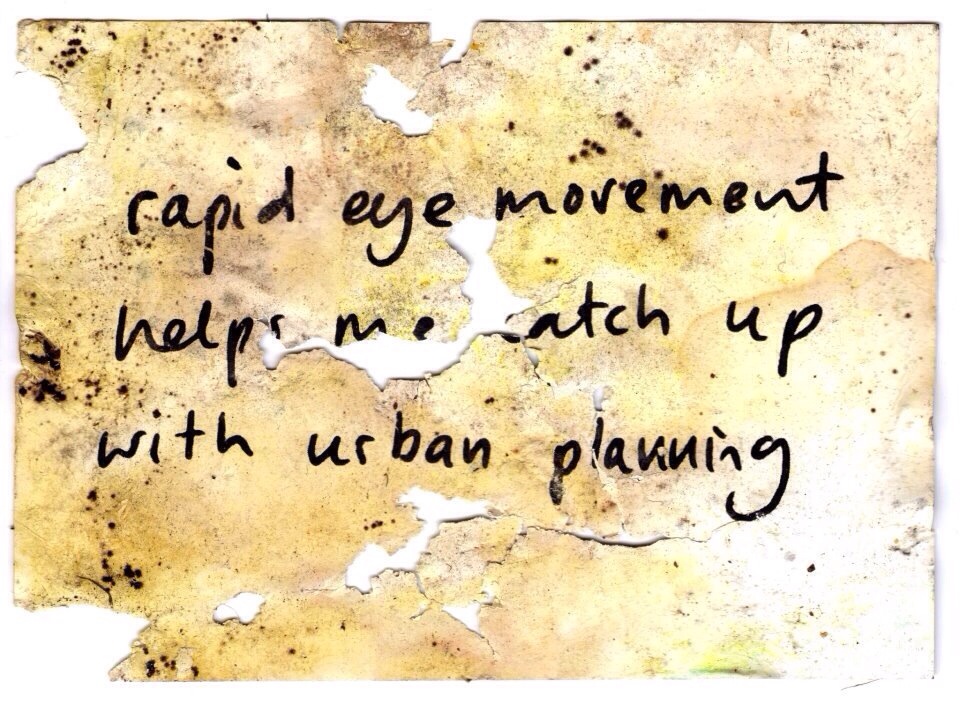 rapid eye movement
helps me catch up
with urban planning